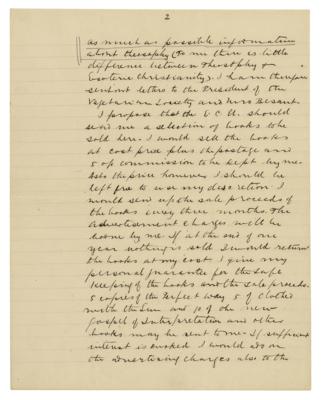 2
as much as possible information
about theosophy (To me there is little
difference between Theosophy &
Esoteric Christianity). I have therefore
sent out letters to the President of the
Vegetarian Society and Mrs Besant.
I propose that the E C U. should
send me a selection of books to be
sold here. I would sell the books
at cost price plus the postage and
5 op commission to be kept by me.
As to the price however I should be
left free to use my discretion. I
would send up the sale proceeds of
the books every three months. The
advertisement charges will be
borne by me. If at the end of one
year nothing is sold I would return
the books at my cost. I give my
personal guarantee for the safe
keeping of the books and the sale proceeds.
5 copies of the Perfect Way, 5 of Clothed
with the Sun and 10 of the new
Gospel of Interpretation and other
books may be sent to me. If sufficient
interest is evoked I would add on
the advertising charges also to the